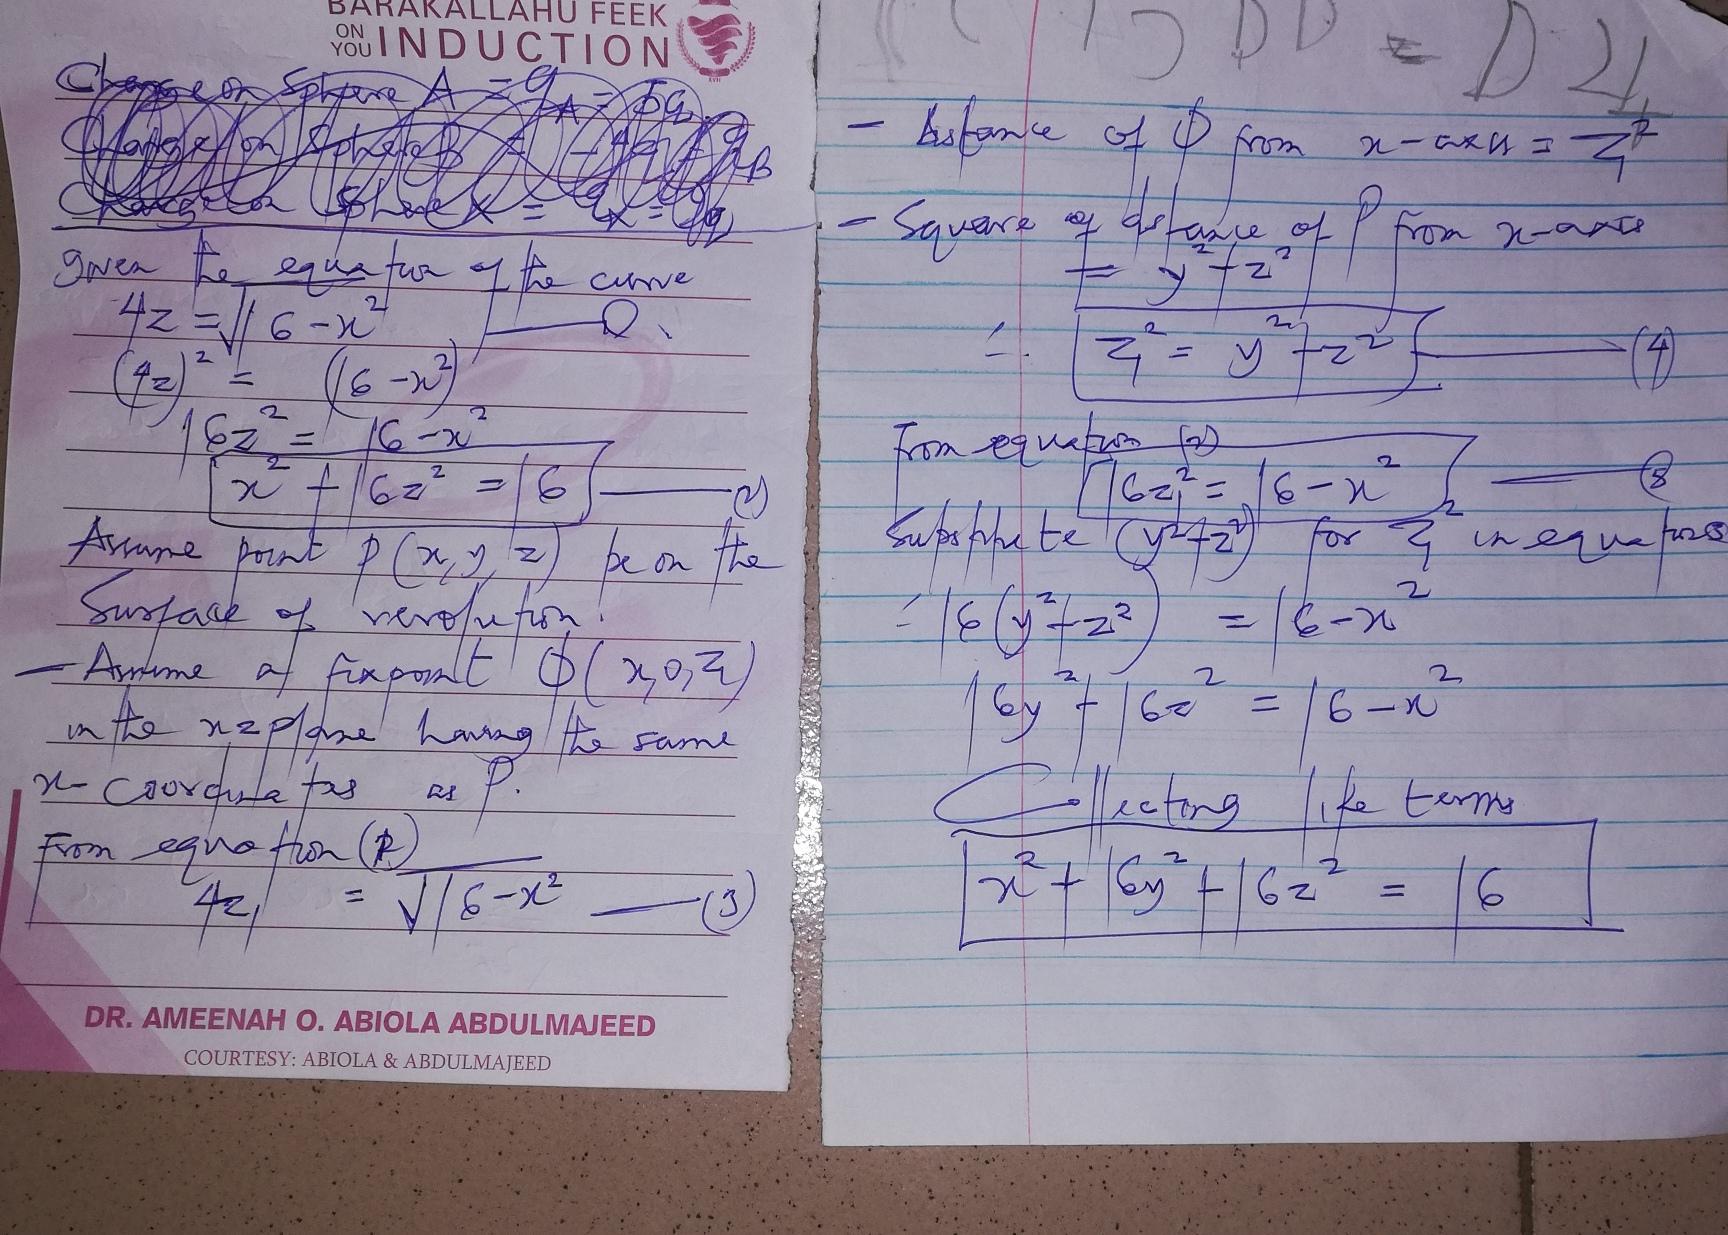 BARAKALLAHU FEEK
ON YOU INDUCTION
Charge on Sphere A = q_A = 5q
Charge on Sphere B
Charge on Sphere X = q_x =
Given the equation of the curve
4z = √16 - x²
(4z)² = (16 - x²)
16z² = 16 - x²
x² + 16z² = 16 (2)
Assume point P(x, y, z) be on the
Surface of revolution.
- Assume a fixpoint Q(x, 0, z₁)
in the xz plane having the same
x-coordinates as P.
From equation
4z₁ = √16 - x² (3)
DR. AMEENAH O. ABIOLA ABDULMAJEED
COURTESY: ABIOLA & ABDULMAJEED
- Distance of Q from x-axis = z₁²
- Square of distance of P from x-axis
= y² + z²
∴ z₁² = y² + z² (4)
From equation (2)
16z₁² = 16 - x²
Substitute (y² + z²) for z₁² in equation
∴ 16(y² + z²) = 16 - x²
16y² + 16z² = 16 - x²
Collecting like terms
x² + 16y² + 16z² = 16